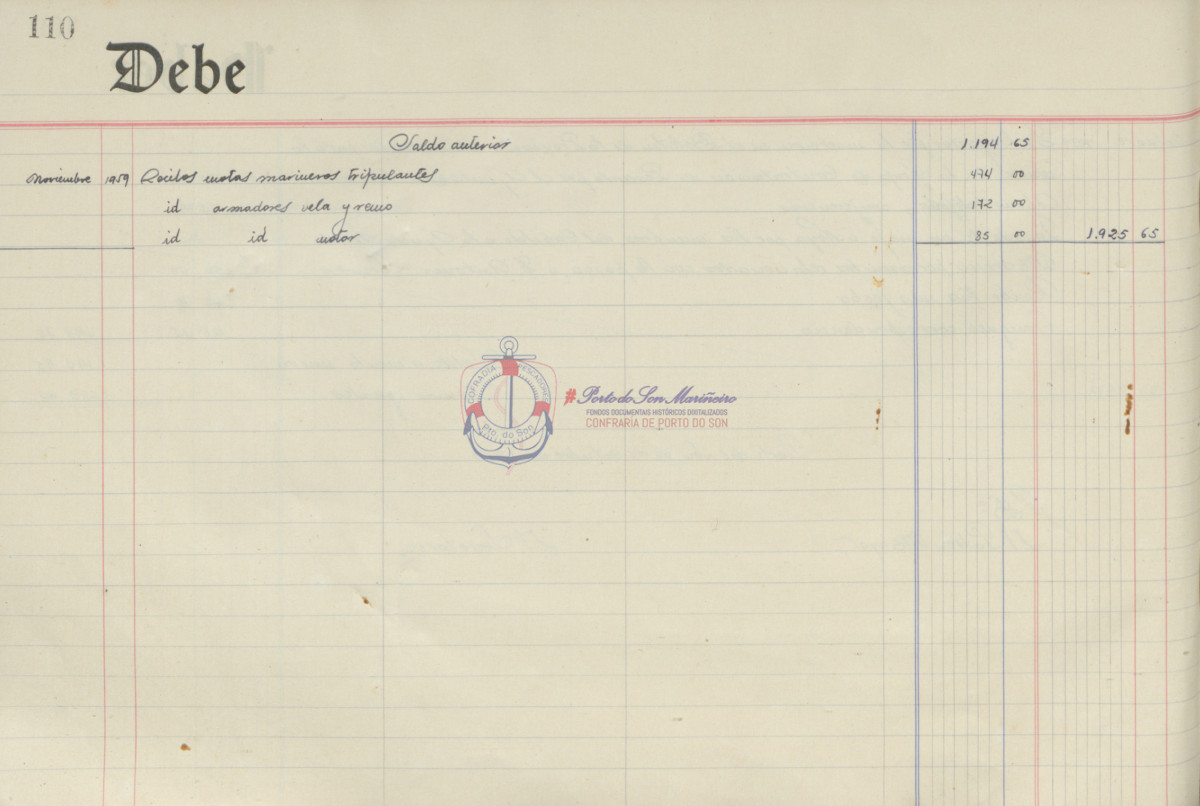 110
Debe
Saldo anterior 1.194 65
Noviembre 1959 Recibos cuotas marineros tripulantes 474 00
id armadores vela y remo 172 00
id id motor 85 00 1.925 65
COFRADIA PESCADORES
Pto. do Son
#Porto do Son Mariñeiro
FONDOS DOCUMENTAIS HISTÓRICOS DIXITALIZADOS
CONFRARIA DE PORTO DO SON